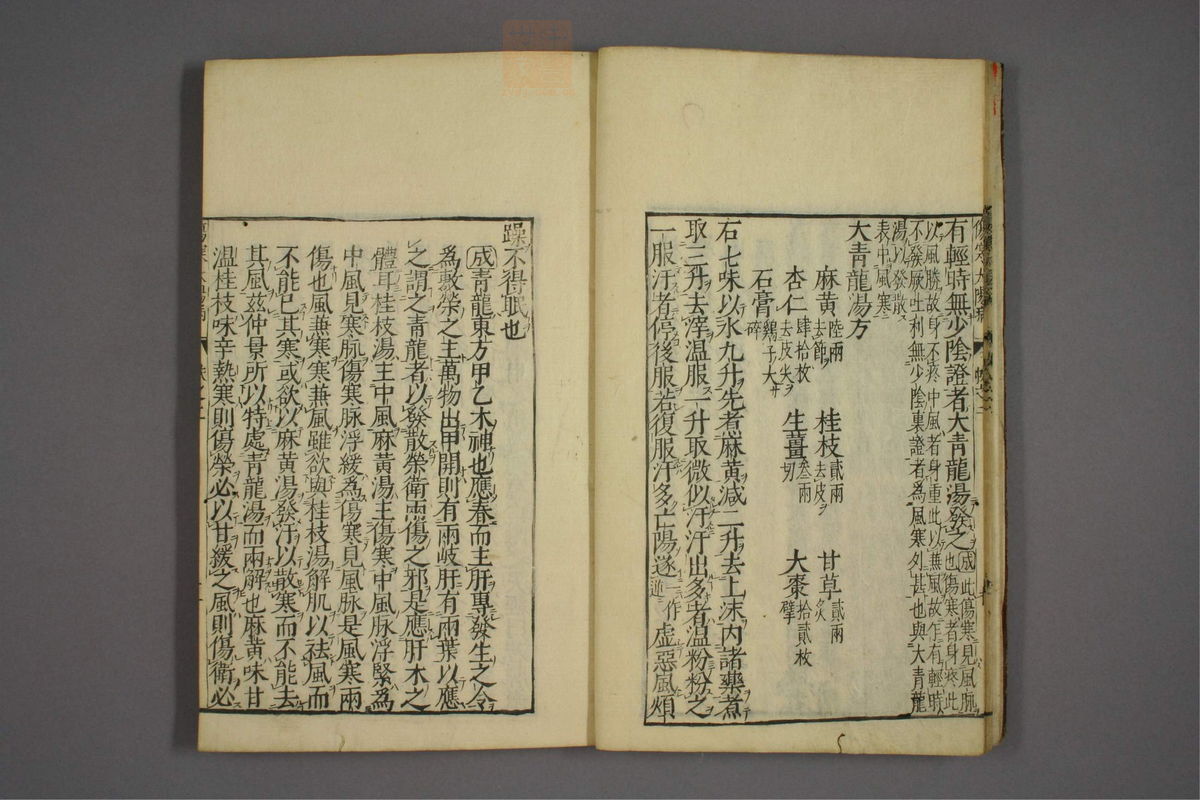 有輕時無少陰證者大青龍湯發之 成 此傷寒見風脉
也傷寒者身疼此
以風勝故身不疼中風者身重此以兼風故乍有輕時
不發厥吐利無少陰裏證者爲風寒列甚也與大青龍
湯以發散
表中風寒
大青龍湯方
麻黄 陸兩去節 桂枝 貳兩去皮 甘草 貳兩炙
杏仁 肆拾枚去皮尖 生薑 叁兩切 大棗 拾貳枚擘
石膏 鷄子大碎
右七味以水九升先煮麻黄減二升去上沫内諸藥煮
取三升去滓温服一升取微似汗汗出多者温粉粉之
一服汗者停後服若復服汗多亡陽遂 一作逆 虚惡風煩
躁不得眠也
成 青龍東方甲乙木神也應春而主肝專發生之令
爲敷榮之主萬物出甲開則有兩岐肝有兩葉以應
之謂之青龍者以發散榮衛兩傷之邪是應肝木之
體耳桂枝湯主中風麻黄湯主傷寒中風脉浮緊爲
中風見寒脉傷寒脉浮緩爲傷寒見風脉是風寒兩
傷也風兼寒寒兼風雖欲與桂枝湯解肌以祛風而
不能已其寒或欲以麻黄湯發汗以散寒而不能去
其風茲仲景所以特處青龍湯而兩解也麻黄味甘
温桂枝味辛熱寒則傷榮必以甘緩之風則傷衛必